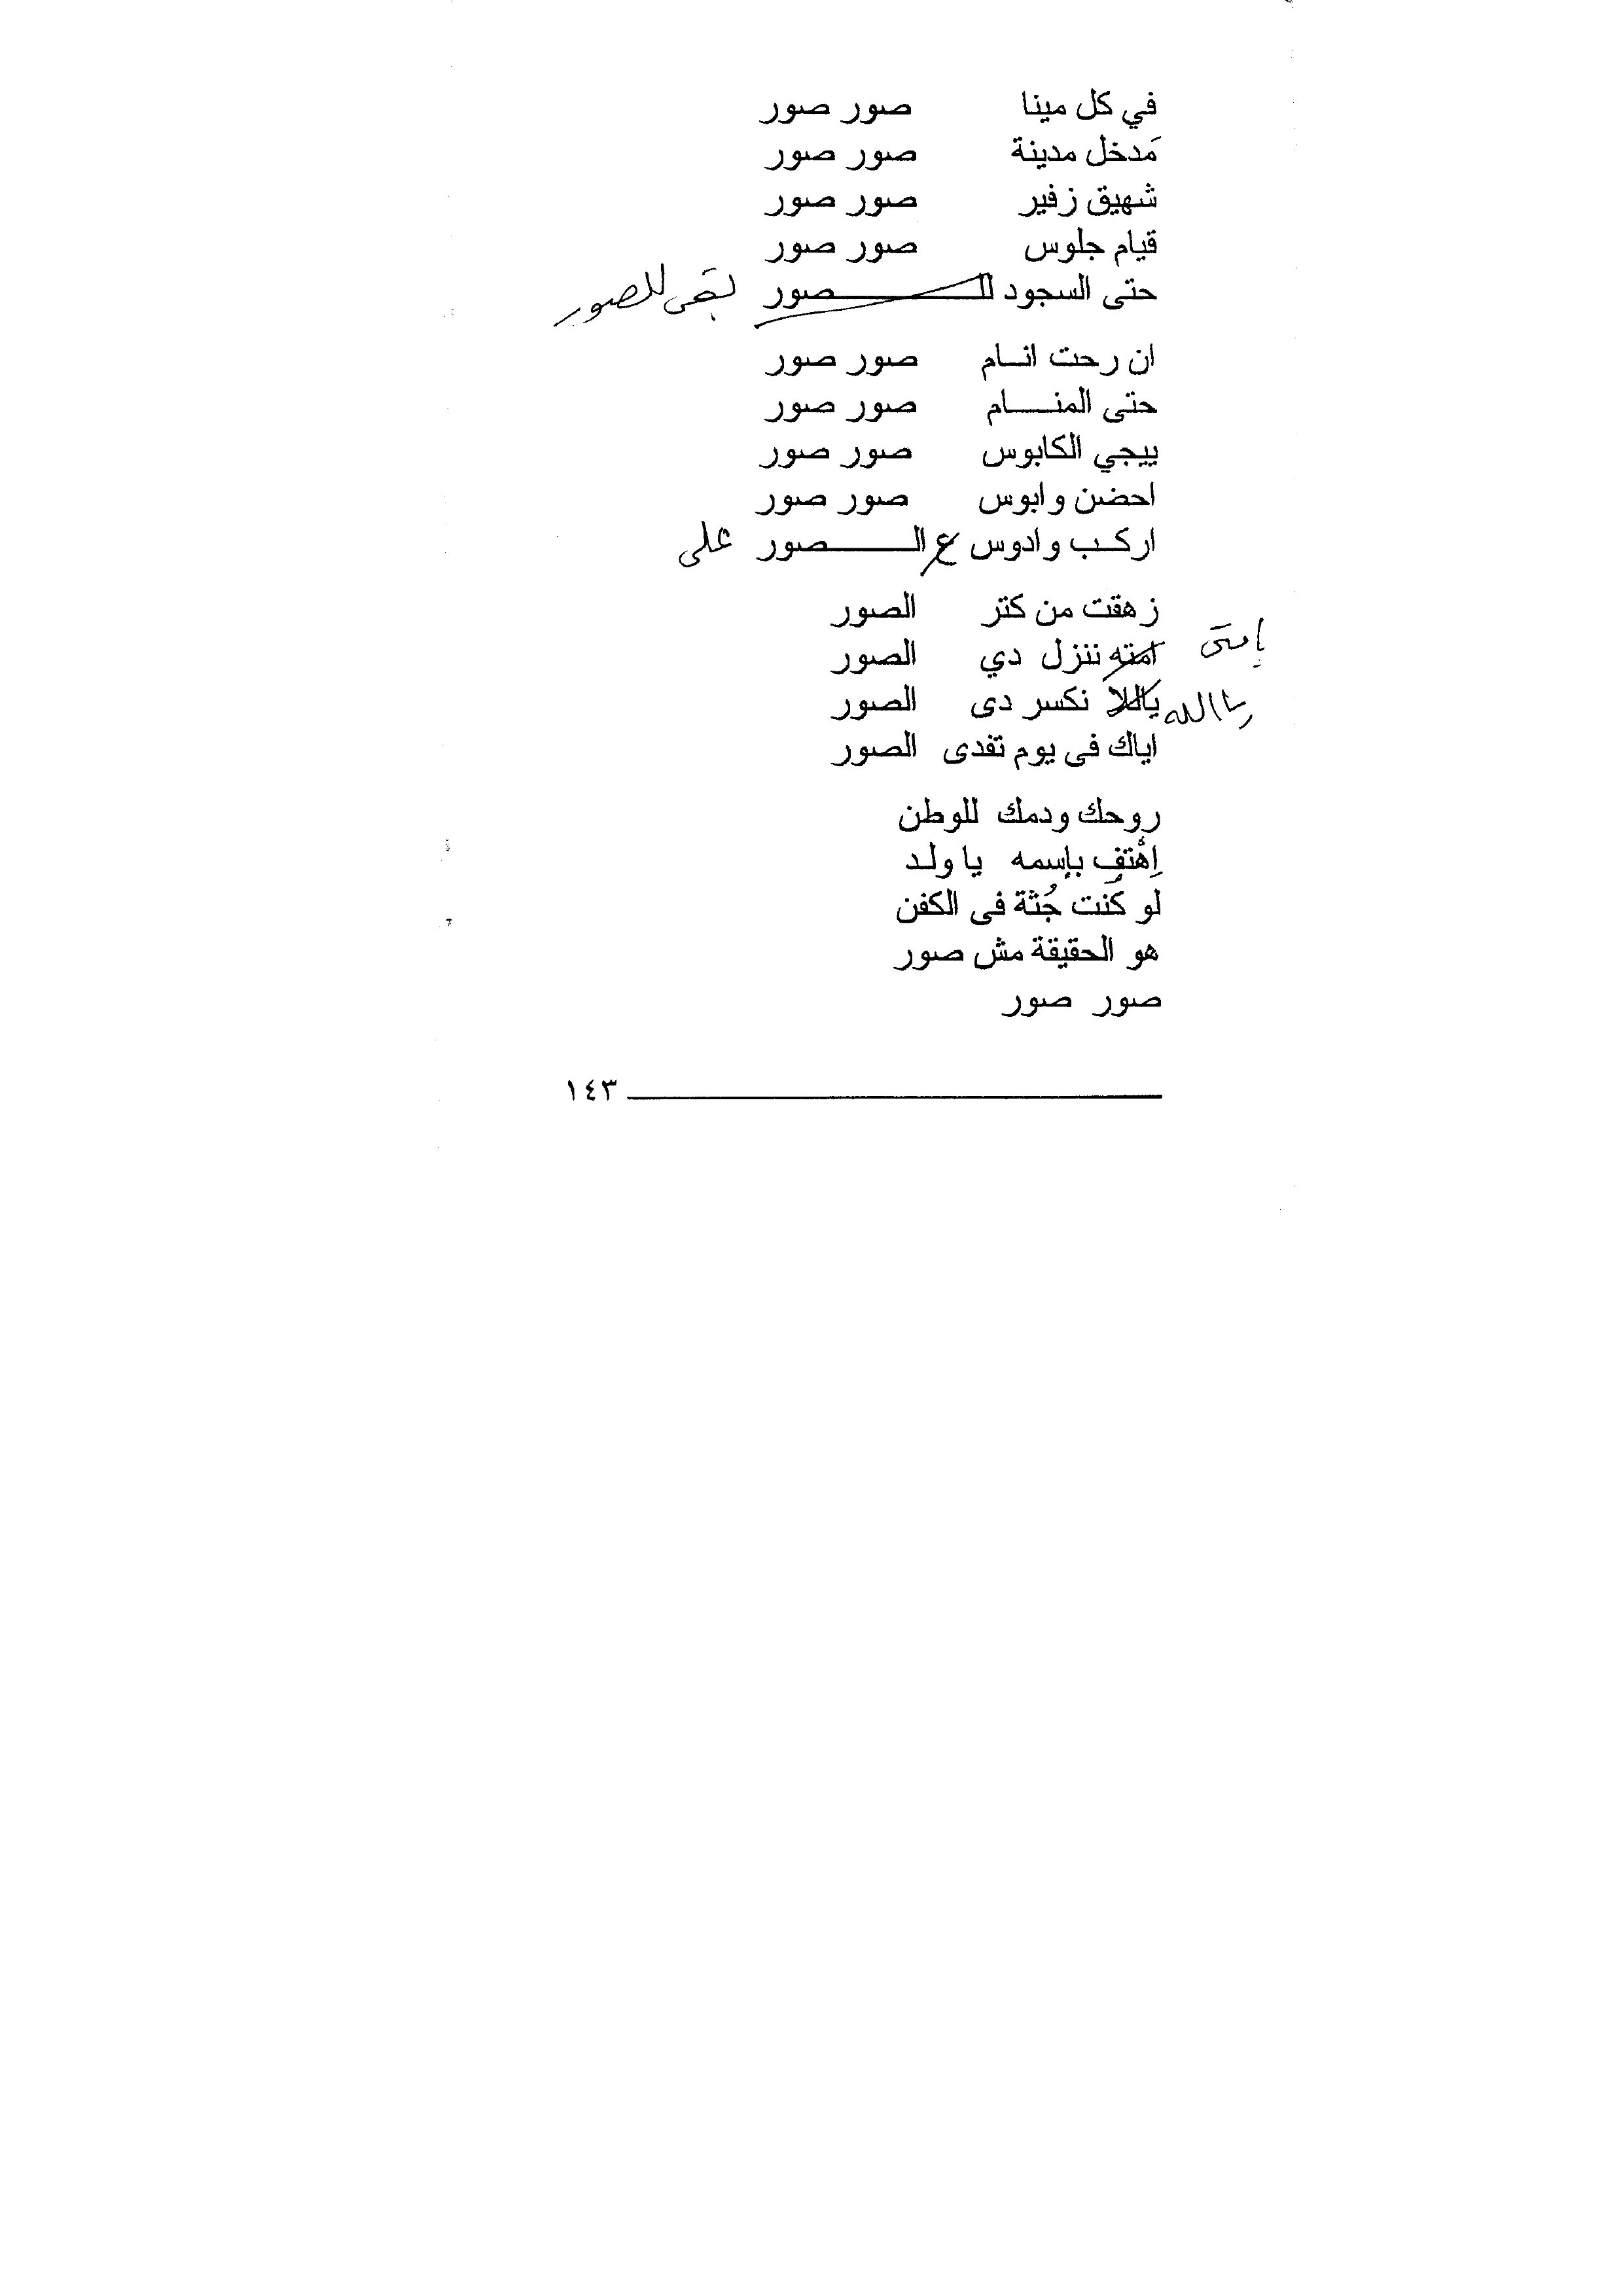 في كل مينا صور صور
مَدخل مدينة صور صور
شهيق زفير صور صور
قيام جلوس صور صور
حتى السجود للـــــــصور بقى للصور
ان رحت انـــام صور صور
حتى المنـــــام صور صور
ييجي الكابوس صور صور
احضن وابوس صور صور
اركـب وادوس ع الـــــــصور على
زهقت من كتر الصور
امته ننزل دي الصور إمتى
ياللا نكسر دى الصور ياالله
اياك فى يوم تفدى الصور
روحك ودمك للوطن
اِهْتفِ بإسمه يا ولـد
لو كُنت جُثة فى الكفن
هو الحقيقة مش صور
صور صور
١٤٣